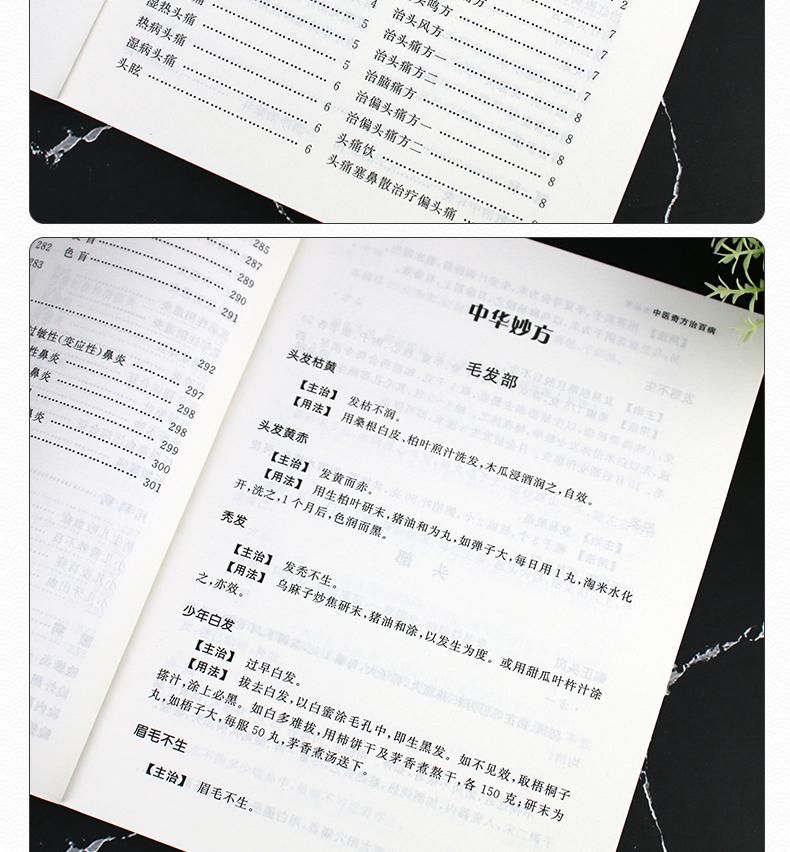 湿热头痛 4
热病头痛 5
湿病头痛 5
头眩 5
6
6
6
6
头鸣方
治头风方 2
治头痛方一 7
治头痛方二 7
治脑痛方 7
治偏头痛方一 8
治偏头痛方二 8
头痛饮 8
头痛塞鼻散治疗偏头痛 8
282 盲 285
283 色盲 287
289
290
291
过敏性(变应性)鼻炎 292
性鼻炎 297
鼻炎 298
298
鼻炎 299
300
301
中医奇方治百病
中华妙方
毛发部
头发枯黄
【主治】 发枯不润。
【用法】 用桑根白皮、柏叶煎汁洗发,木瓜浸酒润之,自效。
头发黄赤
【主治】 发黄而赤。
【用法】 用生柏叶研末,猪油和为丸,如弹子大,每日用1丸,淘米水化
开,洗之,1个月后,色润而黑。
秃发
【主治】 发秃不生。
【用法】 乌麻子炒焦研末,猪油和涂,以发生为度。或用甜瓜叶杵汁涂
之,亦效。
少年白发
【主治】 过早白发。
【用法】 拔去白发,以白蜜涂毛孔中,即生黑发。如不见效,取梧桐子
搽汁,涂上必黑。如白多难拔,用柿饼干及茅香煮熬干,各150克;研末为
丸,如梧子大,每服50丸,茅香煮汤送下。
眉毛不生
【主治】 眉毛不生。